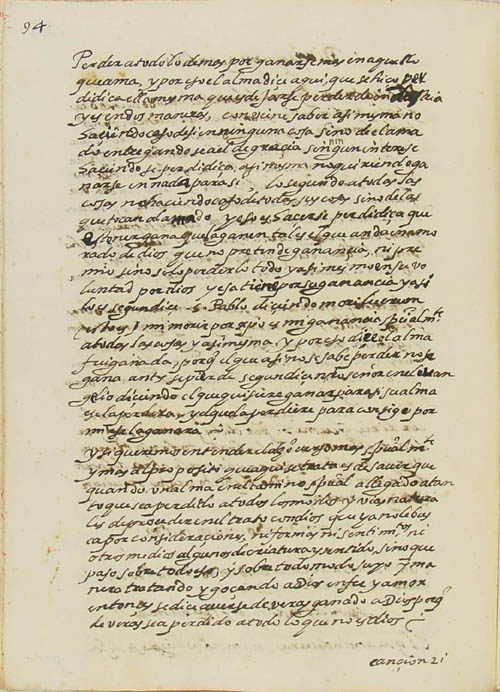 94
Perder a todo lo demas por ganarse mas en aquello
que ama. y por eso el alma dice aqui que se hiço per
didiça ella mysma que es dejarse perder de industria
y es en dos maneras, conviene saber asi mysma no
haciendo caso de si en ninguna cosa sino de el ama
do entregandose a el de gracia sin ningun interese
haciendose perdidiça asi misma no quiriendo ga
narse en nada para si. lo segundo a todas las
cosas no haciendo caso de todas sus cosas sino de las
que tocan al amado y eso es hacerse perdidiça que
es tener gana que la ganen tal es el que anda enamo
rado de dios que no pretende ganancia, ni pre
mio sino solo perderlo todo y a si mysmo en su vo
luntad por dios y esa tiene por su ganancia y asi
lo es segun dice S. Pablo diciendo mori lucrum
esto es, mi morir por xpo es mi ganancia spualmte
a todas las cosas y a si mysmo. y por eso dice el alma
fui ganada, porq el que a si no se sabe perder no se
gana antes se pierde segun dice nro señor en el evan
gelio diciendo el que quisiere ganar para si su alma
ese la perdera, y el que la perdiere para consigo por
mi ese la ganara
y si queremos entender el dicho verso mas spualmte
y mas al proposito que aqui se trata es de saver que
quando un alma en el camino spual a llegado a tan
to que se a perdido a todos los modos y vias natura
les de proceder en el trato con dios que ya no le bus
ca por consideraciones, ni formas ni sentimtos ni
otros medios algunos de criatura y sentido, sino que
paso sobre todo eso, y sobre todo modo suyo y ma
nera tratando y goçando a Dios en fee y amor
entonces se dice averse de veras ganado a Dios porq
de veras se a perdido a todo lo que no es dios
cançion 21